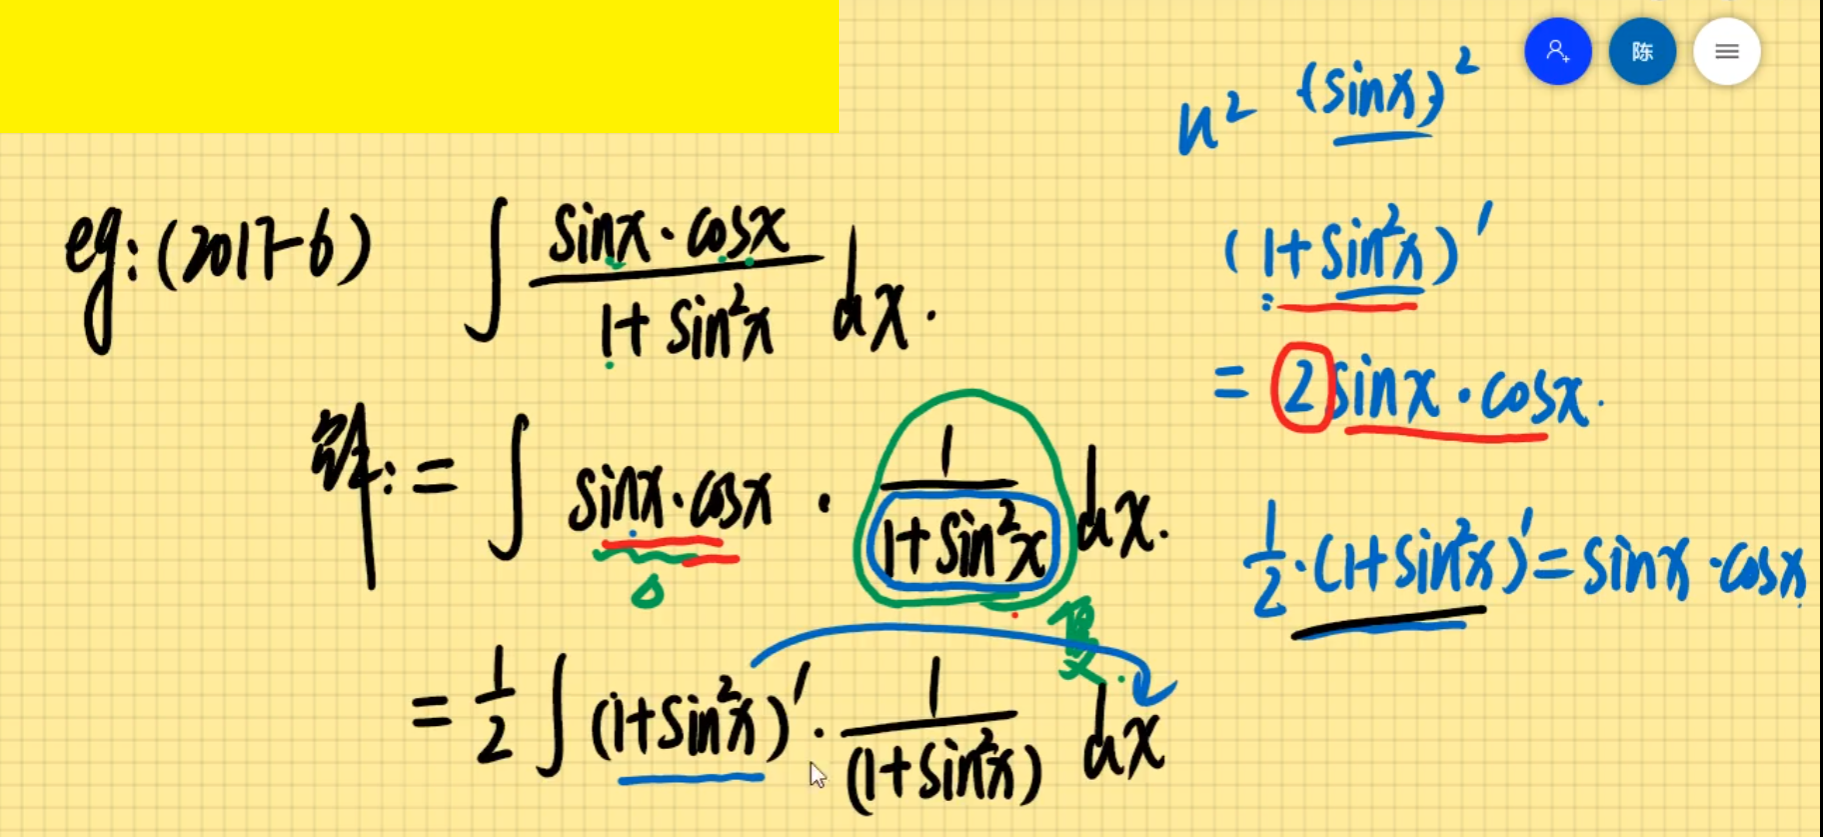 u² (sinx)²
陈
eg: (2017-6) ∫ sinx·cosx / 1+sin²x dx.
(1+sin²x)'
= 2sinx·cosx.
解: = ∫ sinx·cosx · 1 / 1+sin²x dx.
1/2·(1+sin²x)' = sinx·cosx
= 1/2 ∫ (1+sin²x)' · 1 / (1+sin²x) dx